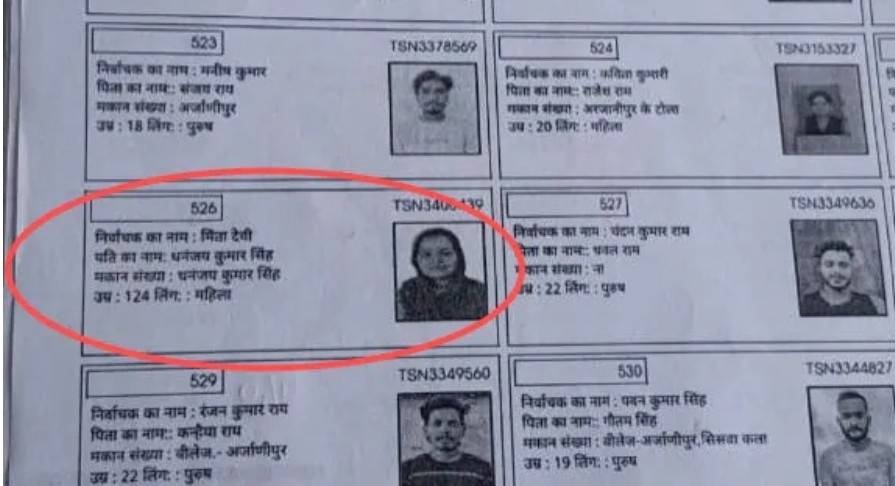 523 TSN3378569
निर्वाचक का नाम : मनीष कुमार
पिता का नाम:: संजय राय
मकान संख्या : अर्जाणीपुर
उम्र : 18 लिंग: : पुरुष
524 TSN3153327
निर्वाचक का नाम : कविता कुमारी
पिता का नाम:: राजेश राम
मकान संख्या : अरजानीपुर के टोला
उम्र : 20 लिंग: : महिला
526
निर्वाचक का नाम : मिंता देवी
पति का नाम: धनंजय कुमार सिंह
मकान संख्या : धनंजय कुमार सिंह
उम्र : 124 लिंग: : महिला
527 TSN3349636
निर्वाचक का नाम : चंदन कुमार राम
पिता का नाम:: धवल राम
मकान संख्या : ना
उम्र : 22 लिंग: : पुरुष
529 TSN3349560
निर्वाचक का नाम : रंजन कुमार राय
पिता का नाम:: कन्हैया राय
मकान संख्या : वीलेज.- अर्जाणीपुर
उम्र : 22 लिंग: : पुरुष
530 TSN3344827
निर्वाचक का नाम : पवन कुमार सिंह
पिता का नाम:: गौतम सिंह
मकान संख्या : वीलेज-अर्जाणीपुर,सिसवा कला
उम्र : 19 लिंग: : पुरुष